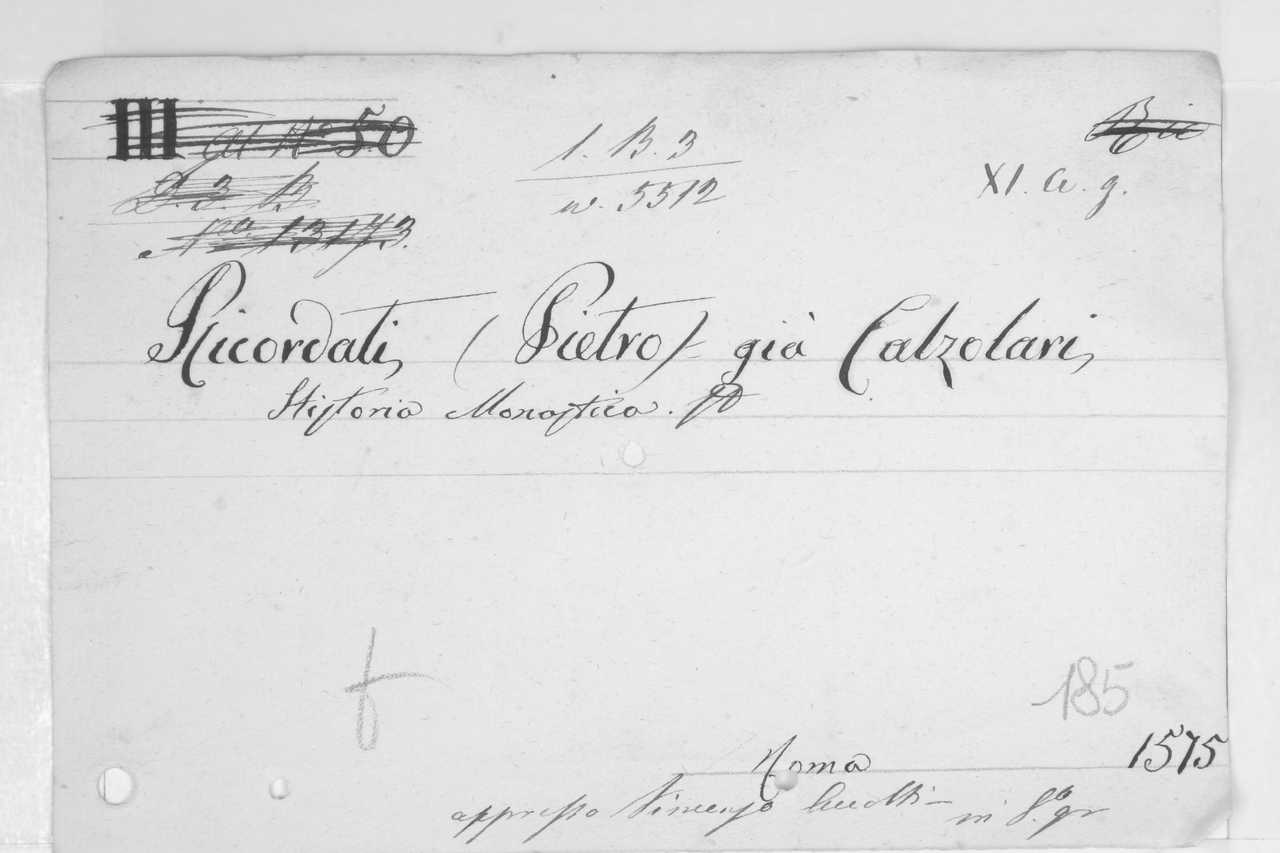 III al No 50
I. B. 3
w. 5512
XI. a. g.
No. 13173.
Ricordati, (Pietro) già Calzolari,
Historia Monastica. fo
f
185
Roma 1575
appresso Vincenzo Accolti in 8.o gr